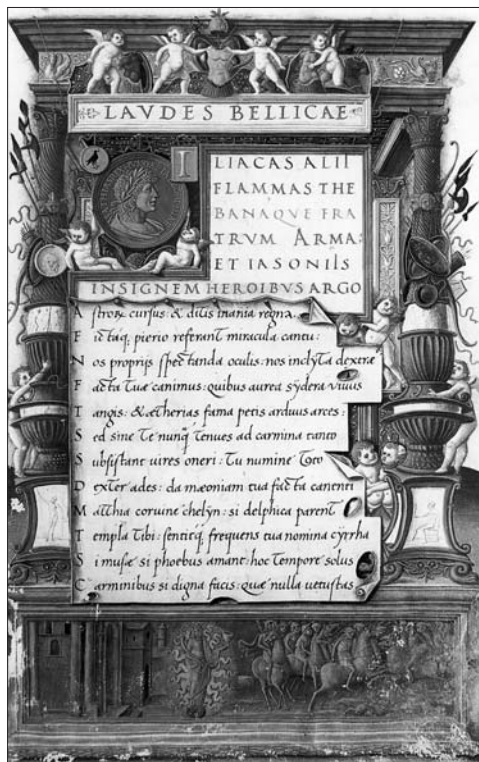 LAVDES BELLICAE
I
LIACAS ALII
FLAMMAS THE
BANAQVE FRA
TRVM ARMA:
ET IASONIIS
INSIGNEM HEROIBVS ARGO
A strorꝝ cursus: & ditis inania regna.
F ictaq; pierio referant miracula cantu:
N os proprijs spectanda oculis: nos inclyta dextræ
F acta tuæ canimus: quibus aurea sydera vivus
T angis: & ætherias fama petis arduus arces:
S ed sine te nunq̃ tenues ad carmina tanto
S ubsistant uires oneri: Tu numine toto
D exter ades: da mæoniam tua facta canenti
M atthia coruine chelyn: si delphica parent
T empla tibi: sentitq; frequens tua nomina cyrrha
S i musæ si phoebus amant: hoc tempore solus
C arminibus si digna facis: quæ nulla vetustas